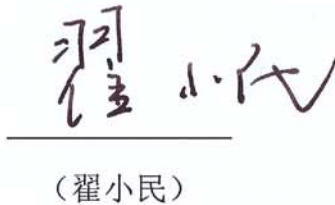 翟小民
（翟小民）